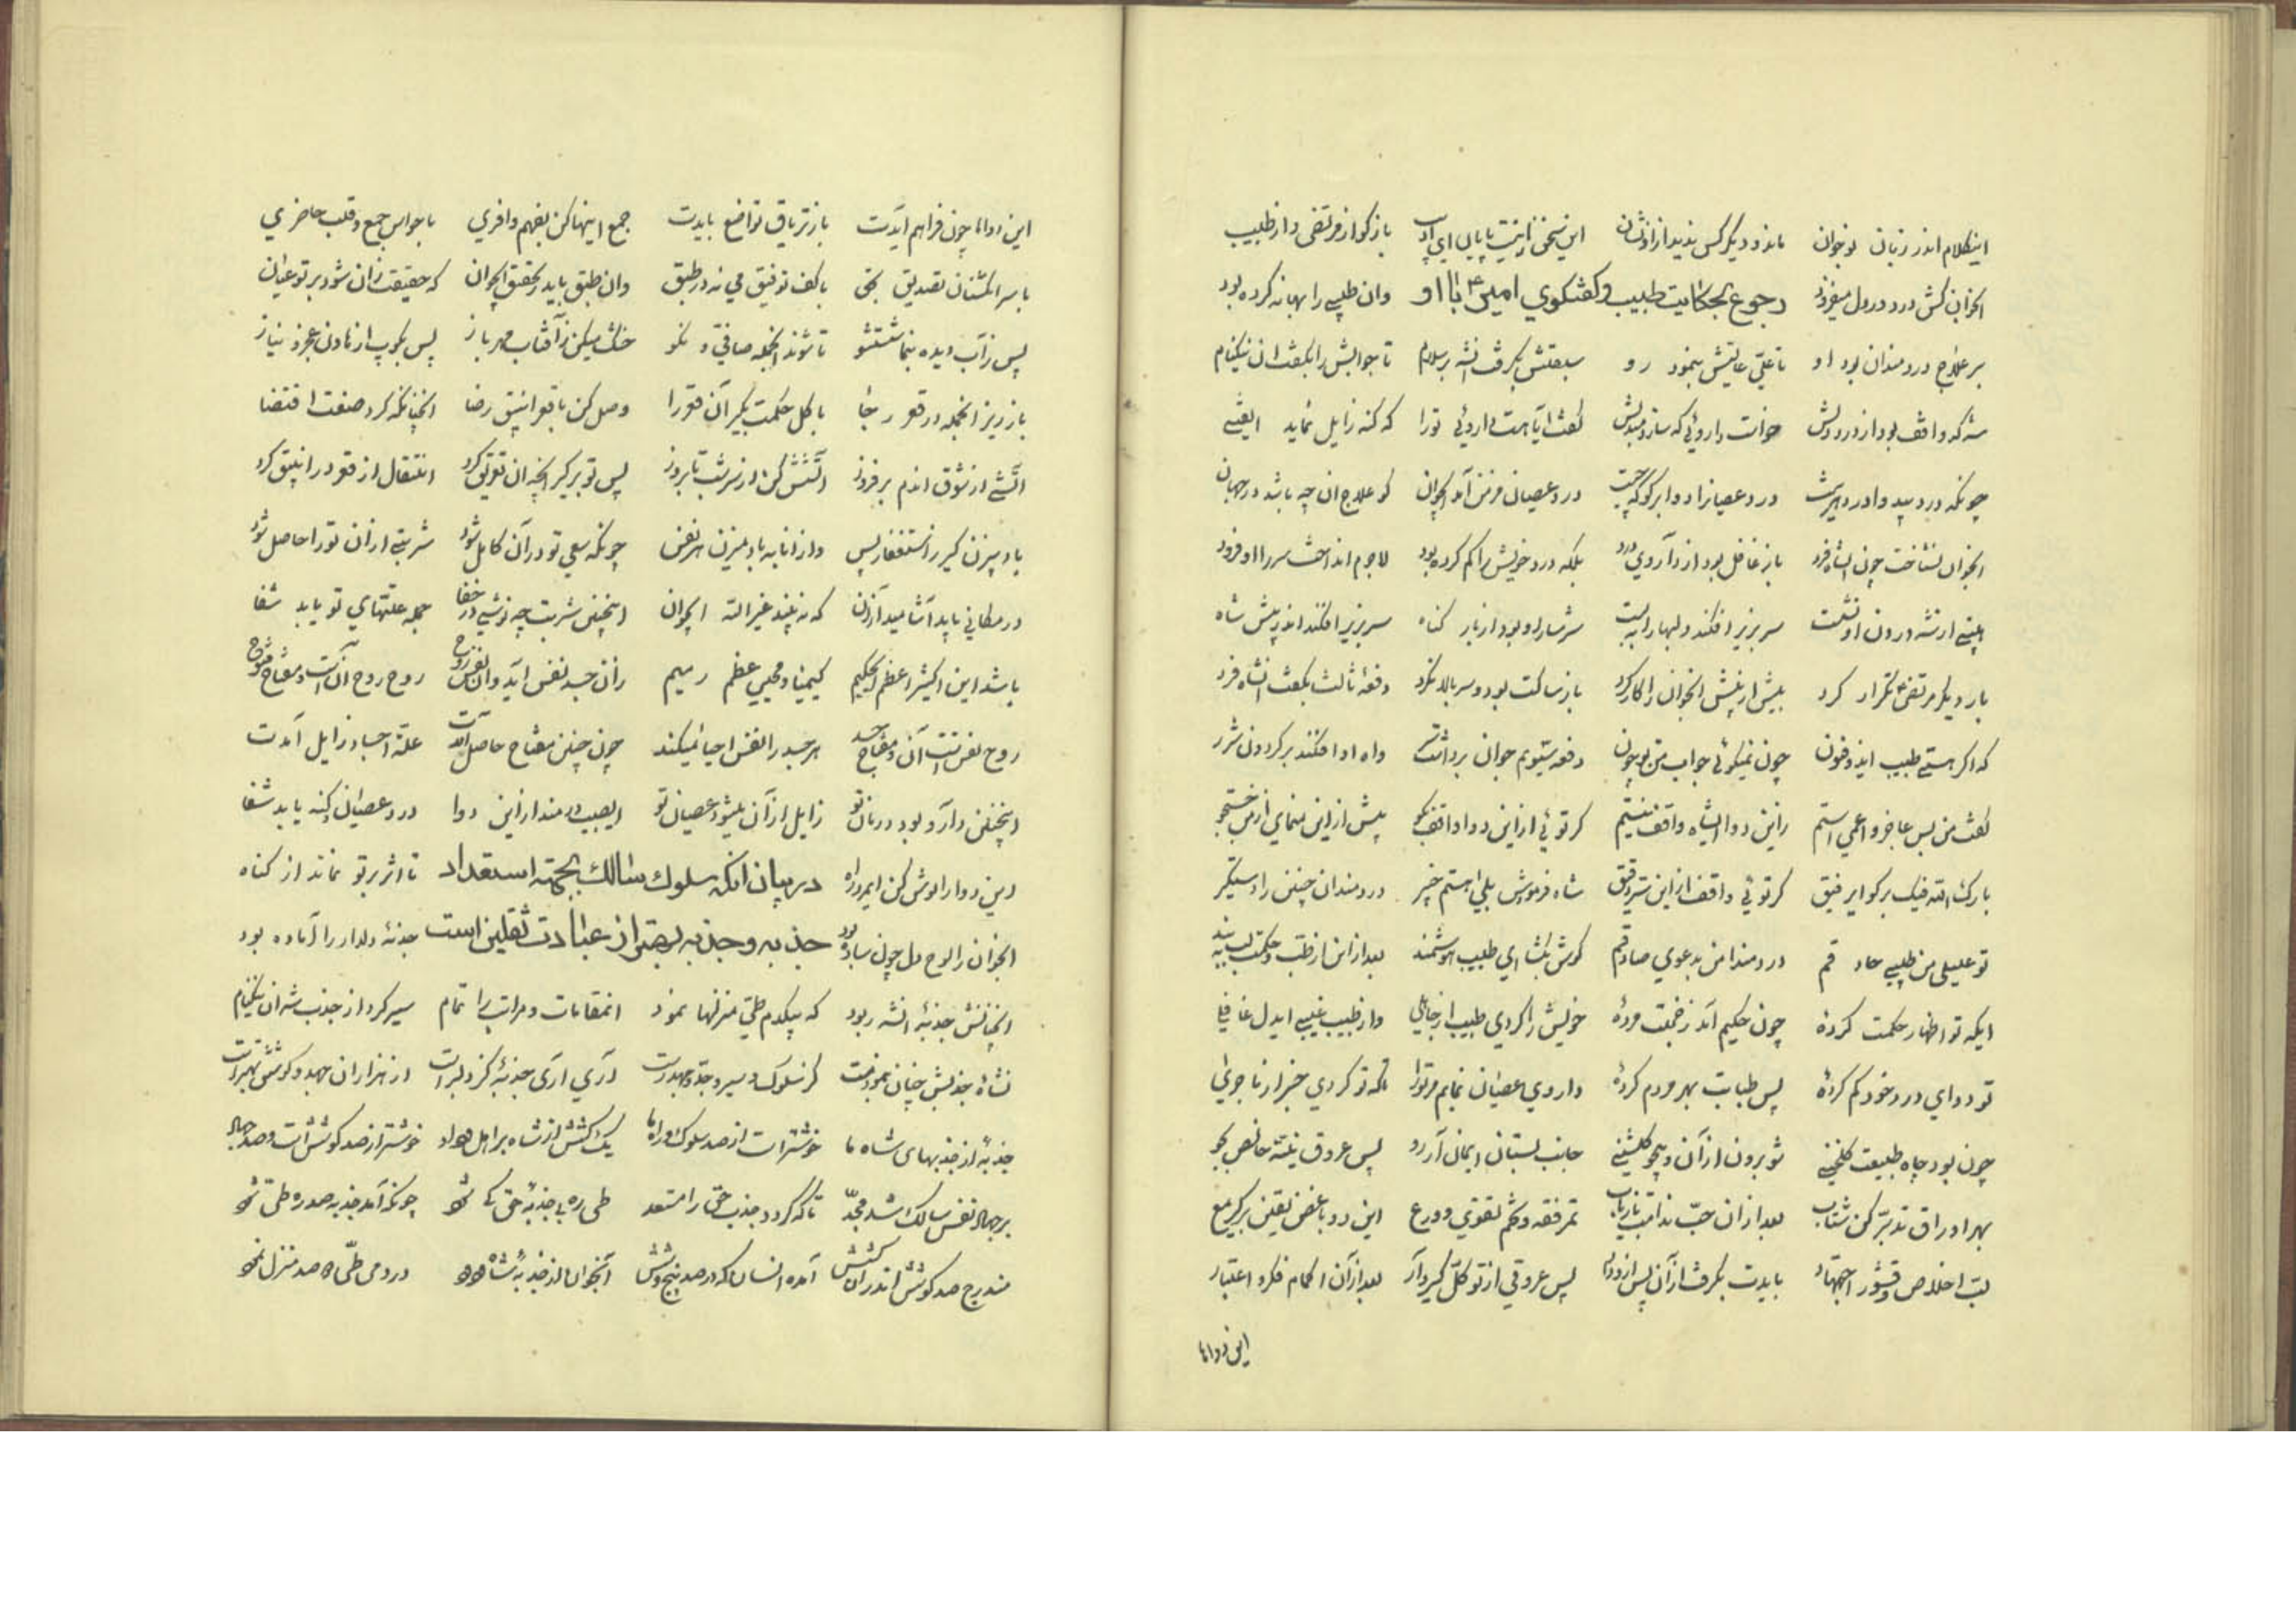 اینکلام اندر زبان نوجوان ماند و دیگر کس ندید از او نشان این سخن را نیست پایان ای ادیب باز کو از مرتضی و از طبیب
انجوان کش درد در دل میفزود رجوع بحکایت طبیب و کفتکوی امیر ع با او وان طبیبی را بهانه کرده بود
بر علاج دردمندان بود او تا علی عالیش بنمود رو سبقتش بگرفت انشه بر سلام تا جوابش را بگفت ان نیکنام
شه که واقف بود از درد دلش خواست داروئی که سازد مبدلش گفت ایا هست داروئی تو را که گنه زایل نماید ای فتی
چونکه درد بیدوا درد در عصیان را دوا بر کو که چیست درد عصیان مزمن آمد ایجوان کو علاج ان چه باشد در جهان
انجوان نشناخت چون انشاه فرد باز غافل بود از داروی درد بلکه درد خویش را کم کرده بود لاجرم انداخت سر را او فرود
سر بزیر افکند و لبها را ببست شرمسار او بود از بار کناه سر بزیر افکند اندر پیش شاه
بار دیگر مرتضی تکرار کرد بیش از پیش انجوان را کار کرد باز ساکت بود و سر بالا نکرد دفعه ثالث بگفت انشاه فرد
که اگر هستی طبیب ای ذوفنون چون نمیگوئی جواب من تو چون دفعه سیوم جوان برداشت سر واه او افکند بر کردون شرر
گفت من بس عاجز و اعمی استم زاین دوا ایشاه واقف نیستم گر توئی از این دوا واقف بگو بیش از این منمای از من جستجو
بارک الله فیک بر کو ای رفیق گر توئی واقف از این سر دقیق شاه فرمودش بلی هستم خبیر دردمندان چنین را دستگیر
تو علیلی من طبیب حاذقم دردمندا من بدعوی صادقم گوش بگشا ای طبیب هوشمند بعد از این از طب و حکمت لب ببند
ایکه تو اظهار حکمت کرده چون حکیم آمد ز خجلت مرده خویش را کردی طبیب از جاهلی وز طبیب غیبی ایدل غافلی
تو دوای درد خود کم کرده پس طبابت بهر مردم کرده داروی عصیان نمایم مر تو را که تو کردی خبر از ماجرای
چون بود چاه طبیعت گلخنی شو برون از آن و بجو گلشنی جانب بستان ایمان آر رو پس عروق نیت خالص بجو
بهر اوراق تدبر کن شتاب بعد از ان حب ندامت بازیاب ثمر فقه و تخم تقوی و ورع این دو با غصن یقین بر گیر مع
لب اخلاص و قشور اجتهاد بایدت بگرفت از آن پس از وداد پس عروقی از توکل گیر و آر بعد از آن اکمام فکر و اعتبار
این دواها
این دواها چون فراهم آیدت باز تریاق تواضع بایدت جمع اینها کن بفهم وافری با حواس جمع و قلب حاضری
با سر انگشتان تصدیق بحق با کف توفیق می نه در طبق وان طبق باید ز تحقیق ایجوان که حقیقت زان شود بر تو عیان
پس ز آب دیده بنما شستشو تا شوند انجمله صافی و نکو خشک میکن ز آفتاب مهر باز پس بکوب از هاون عجز و نیاز
باز ریز انجمله در قعر رجا با گل حکمت بگیر آن قعر را وصل کن با قعر انبیق رضا انچنانکه کرد صنعت اقتضا
آتشی از شوق اندم بر فروز آتشش کن از سر شب تا بروز پس تو بر گیر انچه ان تعریق کرد انتقال از قعر در انبیق کرد
باد بیزن گیر ز استغفار پس وز انابه باد میزن هر نفس چونکه سعی تو در آن کامل شود شربتی از ان تو را حاصل شود
در مکانی باید آشامید آن که نه بیند غیر الله ایجوان اینچنین شربت چه نوشی در خفا جمله علتهای تو یابد شفا
باشد این اکسیر اعظم ای حکیم کیمیا و محیی عظم رمیم زان جسد نفس آید و ان نفس روح روح روح آن است و مفتاح فتوح
روح نفس تست آن و مفتاح جسد هر جسد را نفس احیا میکند چون چنین مفتاح حاصل آیدت علت اجساد زایل آیدت
اینچنین دارو بود درمان تو زایل از آن میشود عصیان تو ای حبیب دردمند از این دوا درد عصیان و گنه یابد شفا
این دوا را نوش کن ای مرد راه در بیان انکه سلوک سالک بجهة استعداد تا اثر بر تو نماند از کناه
انجوان را لوح دل چون ساده بود جذبه و جذبه بهتر از عبادت ثقلین است جذبه دلدار را آماده بود
انچنانش جذبه انشه ربود که بیکدم طی منزلها نمود انمقامات و مراتب را تمام سیر کرد از جذب شه ان نیکنام
نشاه جذبش چنان بنمود مست کز سلوک و سیر و جد و جهد رست آری آری جذبه کز دلبر است از هزاران جهد و کوشش بهتر است
جذبه از جذبهای شاه ما خوشتر است از صد سلوک و راه ما یک کشش از شاه بر اهل وداد خوشتر از صد کوشش است و صد جهاد
بر جهاد نفس سالک شد مجد تا که گردد جذب حق را مستعد طی ره بی جذبه حق کی شود چونکه آمد جذبه صد ره طی شود
مندرج صد کوشش اندر آن کشش آمده انسان که در صد پنج و شش آنجوان از جذبه شاه در دمی طی صد منزل نمود